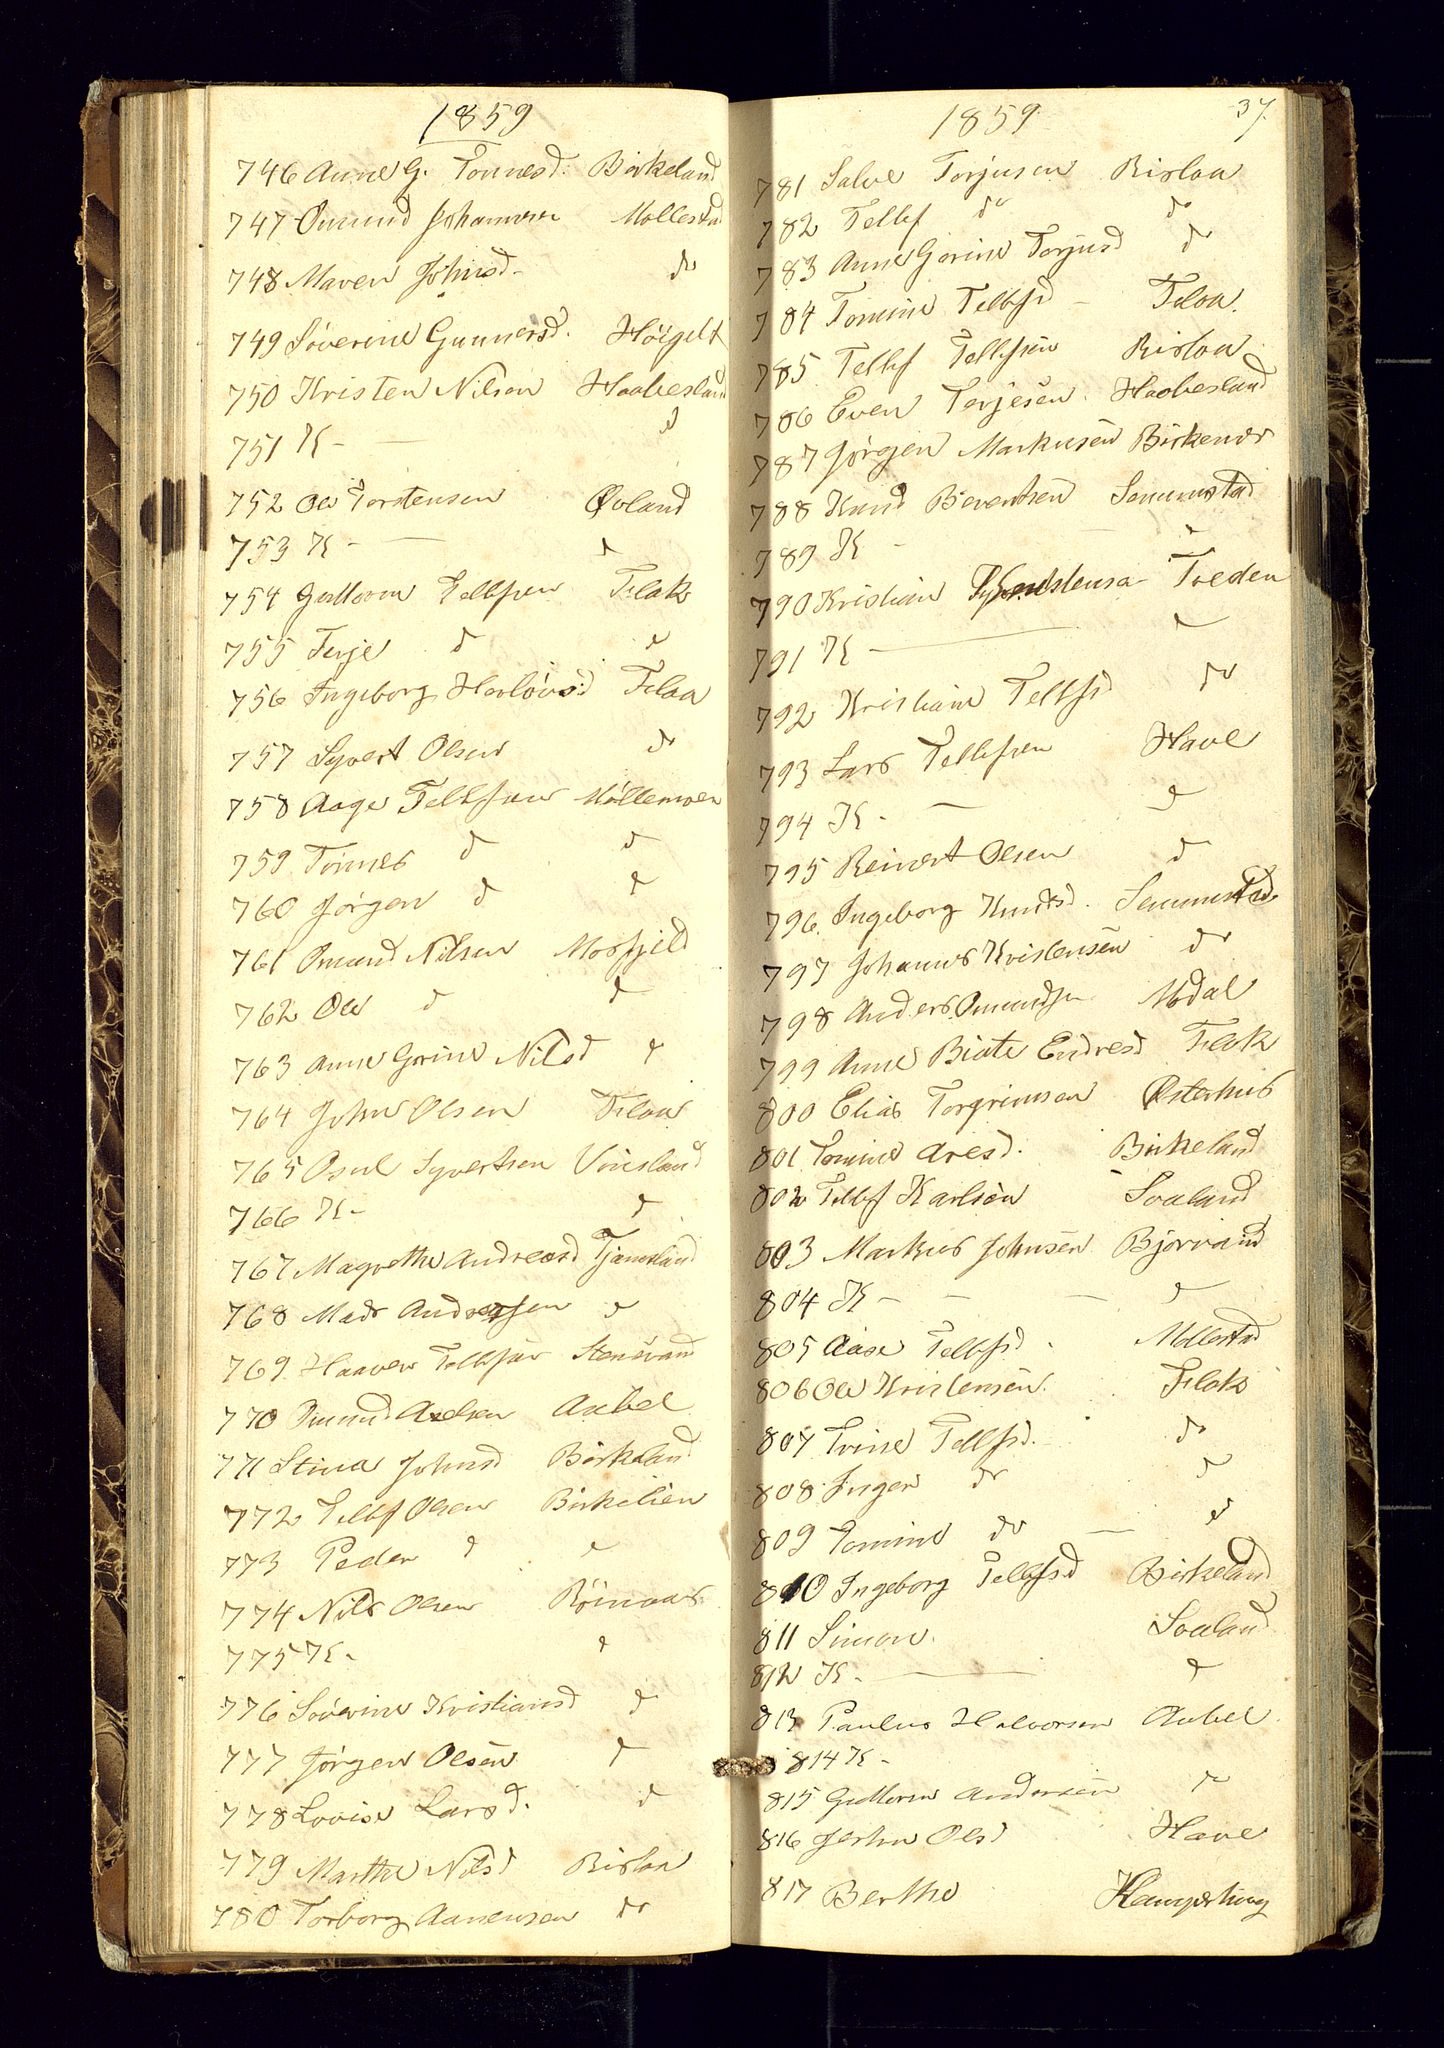 1859
746 Anne G. Tonnesd. Birkeland
747 Omund Johannesen Mollestad
748 Maren Johnsd. do
749 Söverine Gunnersd. Höigilt
750 Kristen Nilsen Haabesland
751 K - — d
752 Ole Torstensen Øvland
753 K - — d
754 Guttorm Tellefsen Flak
755 Terje d d
756 Ingeborg Havlövsd Tiloa
757 Syvert Olsen do
758 Aage Tellefsen Möllemoen
759 Tönnes d d
760 Jörgen d d
761 Omund Nilsen Mosfjeld
762 Ole d d
763 Anne Gorine Nilsd d
764 John Olsen Tiloa
765 Osul Syvertsen Vinsland
766 K - d
767 Magrethe Andreasd Tjamsland
768 Mads Andreassen d
769 Haaver Tellefsen Stensvand
770 Omund Axelsen Axbel
771 Stina Johnsd Birkeland
772 Tellef Olsen Birkelien
773 Peder d d
774 Nils Olsen Röinaas
775 K - d
776 Söverine Kristiansd d
777 Jörgen Olsen d
778 Lovise Larsd. d
779 Marthe Nilsd Risloa
780 Torborg Aanensen do
1859 37.
781 Salve Torjusen Risloa
782 Tellef do do
783 Anne Gorine Torjusd do
784 Tomine Tellefsd - Tiloa.
785 Tellef Tellefsen Risloa
786 Even Terjesen. Haabesland
787 Jörgen Markusen Birkenes
788 Knud Berentsen Senumstad
789 K - d
790 Kristian Treden
791 K — d
792 Kristiane Tellefsd do
793 Lars Tellefsen Have
794 K - — d
795 Reinert Olsen d
796 Ingeborg Knudsd. Senumstad
797 Johannes Kristensen do
798 Anders Omundsen Modal
799 Anne Biate Endresd Flak
800 Elias Torgrimsen Østerhus
801 Tomine Aresd. Birkeland
802 Tellef Karlsen Svaland
803 Markus Johnsen Bjorvand
804 K - — — d
805 Aase Tellefsd. Mollestad
806 Ole Kristensen. Flak
807 Trine Tellefsd. do
808 Inger do d
809 Tomine do — d
810 Ingeborg Tellefsd Birkeland
811 Simon. Svaland
812 K. — d
813 Paulus Halvorsen Axbel
814 K -
815 Guttorm Andersen do
816 Olsd Have
817 Berthe